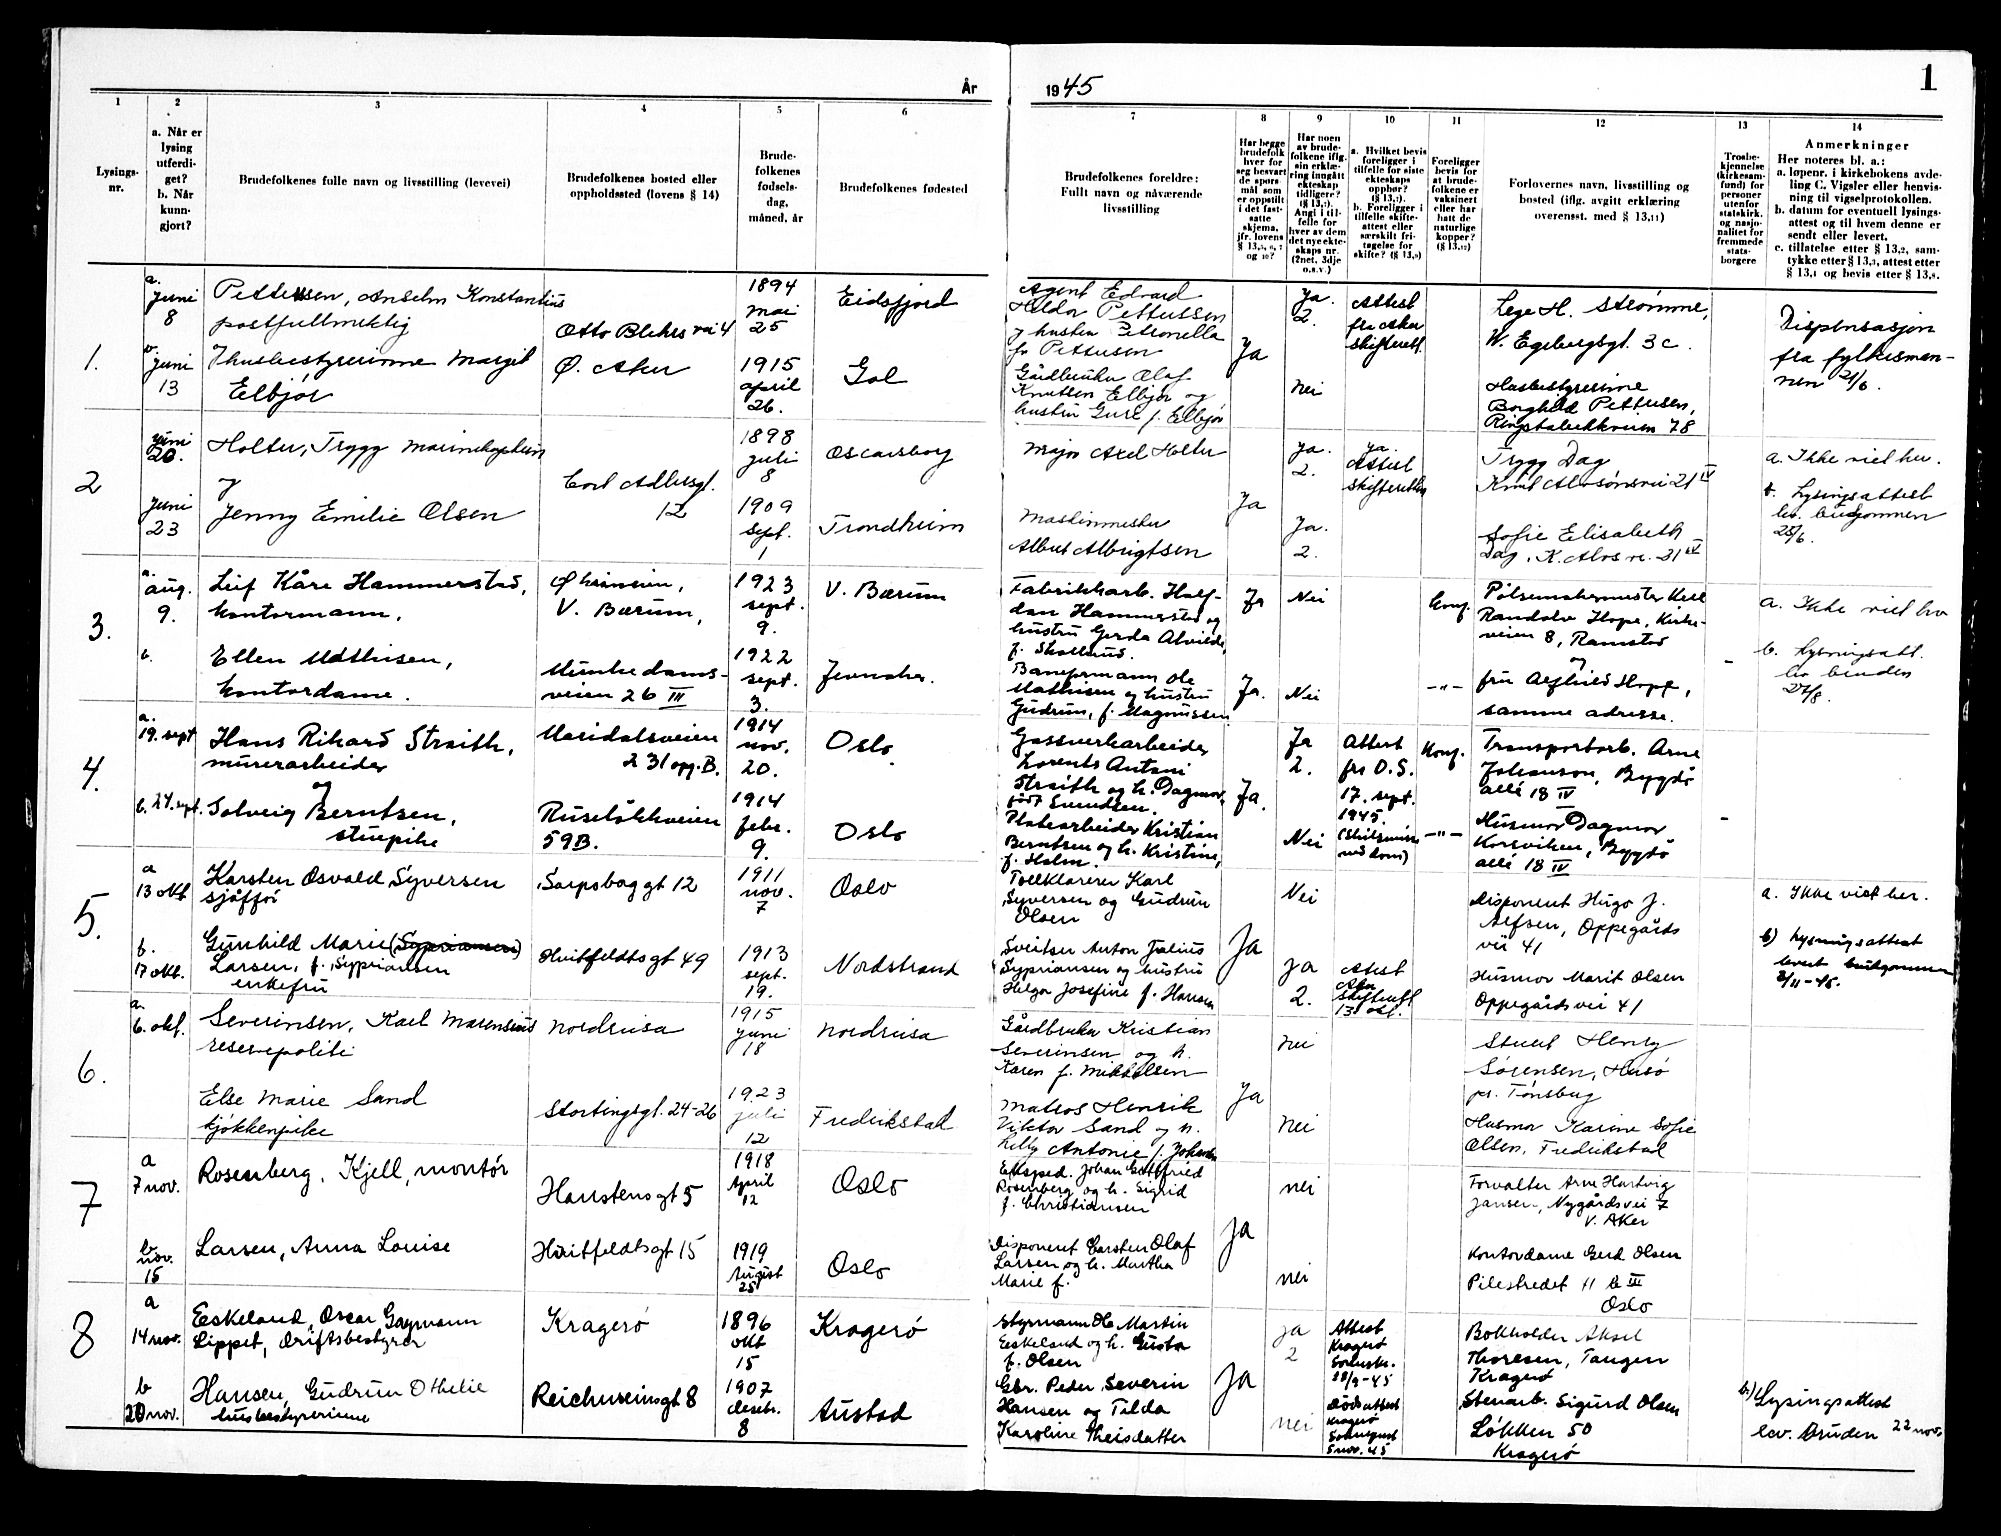 År
1945
1
1
2
3
4
5
6
7
8
9
10
11
12
13
14
Lysings-
nr.
a. Når er
lysing
utferdi-
get?
b. Når
kunn-
gjort?
Brudefolkenes fulle navn og livsstilling (levevei)
Brudefolkenes bosted eller
oppholdssted (lovens § 14)
Brude-
folkenes
fødsels-
dag,
måned, år
Brudefolkenes fødested
Brudefolkenes foreldre:
Fullt navn og nåværende
livsstilling
Har begge
brudefolk
hver for
seg besvart
de spørs-
mål som
er oppstilt
i det fast-
satte
skjema,
jfr. lovens
Har noen
av brude-
folkene iflg.
sin erklæ-
ring inngått
ekteskap
tidligere?
Angi i til-
felle for
hver av dem
det nye ekte-
skaps nr.
(2net, 3dje
o.s.v.)
a. Hvilket bevis
foreligger i
tilfelle for siste
ekteskaps
opphør?
b. Foreligger i
tilfelle skifte-
attest eller
særskilt fri-
tagelse for
skifte?
Foreligger
bevis for
at brude-
folkene er
vaksinert
eller har
hatt de
naturlige
kopper?
Forlovernes navn, livsstilling og
bosted (iflg. avgitt erklæring
overensst. med § 13,11)
Trosbe-
kjennelse
(kirkesam-
fund) for
personer
utenfor
statskirk.
og nasjo-
nalitet for
fremmede
stats-
borgere
Anmerkninger
Her noteres bl. a.:
a. løpenr. i kirkebokens avde-
ling C. Vigsler eller henvis-
ning til vigselprotokollen.
b. datum for eventuell lysings-
attest og til hvem denne er
sendt eller levert.
c. tillatelse etter § 13,2, sam-
tykke etter § 13,3, attest etter
§ 13,4 og bevis etter § 13,8.
1.
a.
juni
8
Pettersen, Anselm Konstantius
postfullmektig
Otto Blehrs vei 4
1894
mai
25
Eidsfjord
Agent Edvard
Haldor Pettersen
og hustru Petronella
f. Pettersen
Ja
Ja.
2.
Attest
fra Aker
skifterett.
Lege H. Strømme,
W. Egebergsgt. 3c.
Dispensasjon
fra fylkesman-
nen 21/6.
b.
juni
13
Husbestyrerinne Margit
Elbjør
Ø. Aker
1915
april
26.
Gol
Gårdbruker Olaf
Knutsen Elbjør og
hustru Guri f. Elbjør
nei
Husbestyrerinne
Borghild Pettersen,
Ringstabekkveien 78
2
juni
20.
Holter, Trygg marinekaptein
og
Cort Adlersgt.
12
1898
juli
8
Oscarsborg
Major Axel Holter
Ja
Ja.
2.
Ja.
Attest
skifteretten
Trygg Dag
Knut Alvsønsvei 21 IV
a. Ikke viet her.
b. Lysingsattest
lev. brudgommen
25/6.
juni
23
Jenny Emilie Olsen
1909
sept.
1
Trondheim
Maskinmester
Albert Albrigtsen
Ja.
2.
Sofie Elisabeth
Dag, K. Alvs.v. 21 IV
3.
a.
aug.
9.
Leif Kåre Hammerstad,
kontormann.
V. Bærum,
1923
sept.
9.
V. Bærum
Fabrikkarb. Half-
dan Hammerstad og
hustru Gerda Alvilde,
Ja
Nei
Konf.
Pølsemakermester Kell
Randolv Hope, Kirke-
veien 8, Ramstad
og
a. Ikke viet her
b. Lysningsatt.
lev bruden
27/8.
b.
Ellen Mathisen,
kontordame.
Munkedams-
veien 26 III
1922
sept.
3.
Jevnaker.
Banеformann Ole
Mathisen og hustru
Gudrun, f. Magnussen
Ja.
Nei
-"-
samme adresse.
-
4.
a.
19. sept
Hans Rikard Straith,
murerarbeider
og
Maridalsveien
231 opg. B.
1914
nov.
20.
Oslo
Gassverkarbeider
Lorents Antoni
Straith og h. Dagmar,
født Svendsen.
Ja.
Ja
2.
Attest
fra O.S.
17. sept.
1945.
(skilsmisse
ved dom)
Konf.
Transportarb. Arne
Johanson, Bygdø
allé 18 IV
b. 24. sept.
Solveig Berntsen,
stuepike
Ruseløkkveien
59B.
1914
febr.
9.
Oslo
Platearbeider Kristian
Berntsen og h. Kristine,
f. Holm.
Nei
-"-
Husmor Dagmar
Korsviken, Bygdø
allé 18 IV
-
5.
a
13 okt
Karsten Osvald Syversen
sjåffør
Sarpsborggt 12
1911
nov.
7
Oslo
Tollklarerer Karl
Syversen og Gudrun
Olsen
Ja
Nei
Disponent Hugo J.
Alfsen, Oppegårds
vei 41
a. Ikke viet her.
b) Lysningsattest
levert brudgommen
2/11-45.
b.
17 okt.
Gunhild Marie (Sypriansen)
Larsen, f. Sypriansen
enkefru
Hvitfeldtsgt 49
1913
sept.
19.
Nordstrand
Sveitser Anton Julius
Sypriansen og hustru
Helga Josefine f. Hansen
ja
2.
Attest
Aker
skifterett
13 okt.
Husmor Marit Olsen
Oppegårdsvei 41
6.
a.
6. okt.
Severinsen, Karl Marensius
reservepoliti
Nordreisa
1915
juni
18
Nordreisa
Gårdbruker Kristian
Severinsen og h.
Karen f. Mikkelsen
Ja
nei
Stuert Henry
Sørensen, Husø
pr. Tønsberg
Else Marie Sand
kjøkkenpike
Stortingsgt. 24-26
1923
juli
12
Fredrikstad
Matros Henrik
Viktor Sand og h.
Lilly Antonie f. Johansen
nei
Husmor Karine Sofie
Olsen, Fredrikstad
7
a
7 nov.
Rosenberg, Kjell, montør
Haustensgt 5
1918
April
12
Oslo
Eksped. Johan Gottfried
Rosenberg og h. Sigrid
f. Christiansen
Ja
nei
Forvalter Arne Hartvig
Jansen, Nygårdsvei 7
V. Aker
b
nov.
15
Larsen, Anna Louise
Hvitfeldtsgt 15
1919
August
25
Oslo
Disponent Carsten Olaf
Larsen og h. Martha
Marie f.
nei
Kontordame Gerd Olsen
Pilestredet 11 b III
Oslo
8
a
14 nov.
Eskeland, Oscar Gaymann
Lippet, driftsbestyrer
Kragerø
1896
okt
15
Kragerø
Styrmann Ole Martin
Eskeland og h. Gusta
f. Olsen
Ja
ja
2
Attest
Kragerø
Sorenskr.
Bokholder Aksel
Thoresen, Tangen
Kragerø
b
20 nov.
Hansen, Gudrun Othelie
husbestyrerinne
Reichweinsgt 8
1907
desebr.
8
Austad
Gbr. Peder Severin
Hansen og Tilda
Karoline Theisdatter
nei
Dødsattest
Kragerø
5 nov. 45
Stenarb. Sigurd Olsen
Løkken 50
Kragerø
b.) Lysingsattest
lev. Bruden 22 nov.